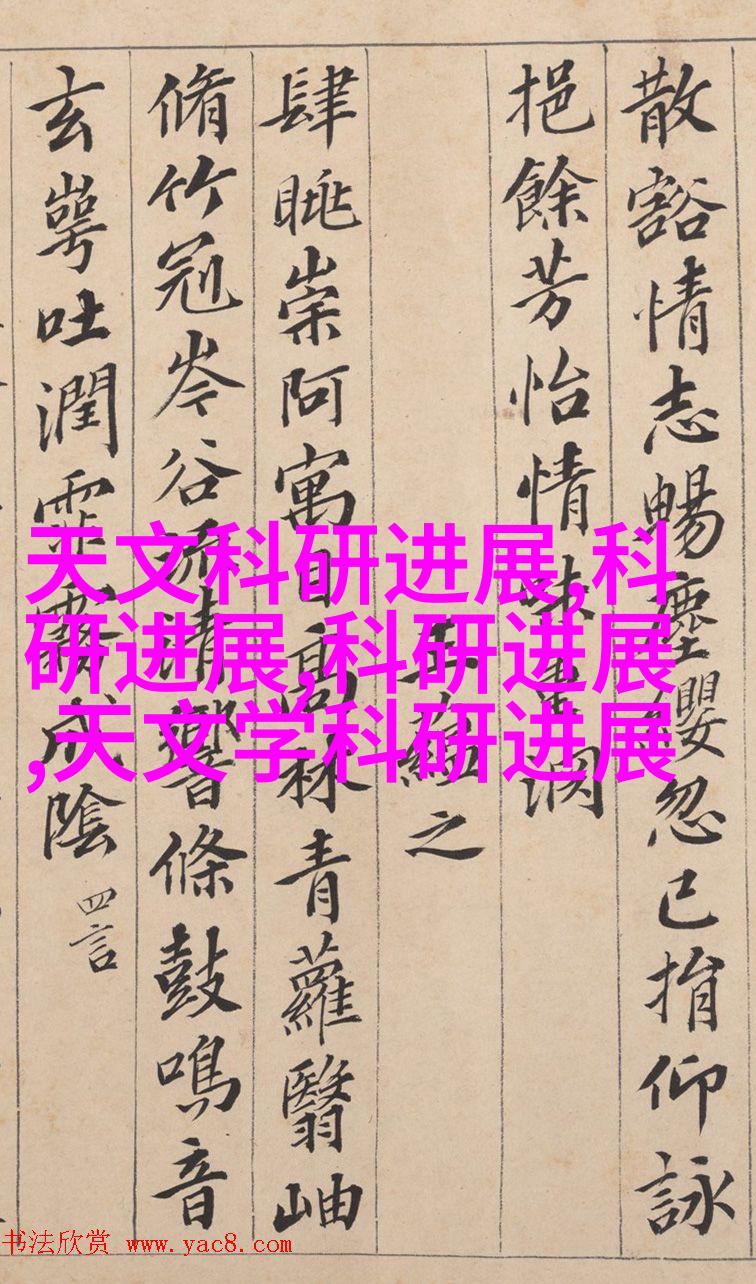 散豁情志暢塵纓忽已捐仰詠
挹餘芳怡情味重渕
王蘊之
肆眺崇阿寓目高林青蘿翳岫
脩竹冠岑谷流清響條鼓鳴音
玄崿吐潤霏霧成陰 四言
天文科研进展,科
研进展,科研进展
,天文学科研进展
书法欣赏 www.yac8.com